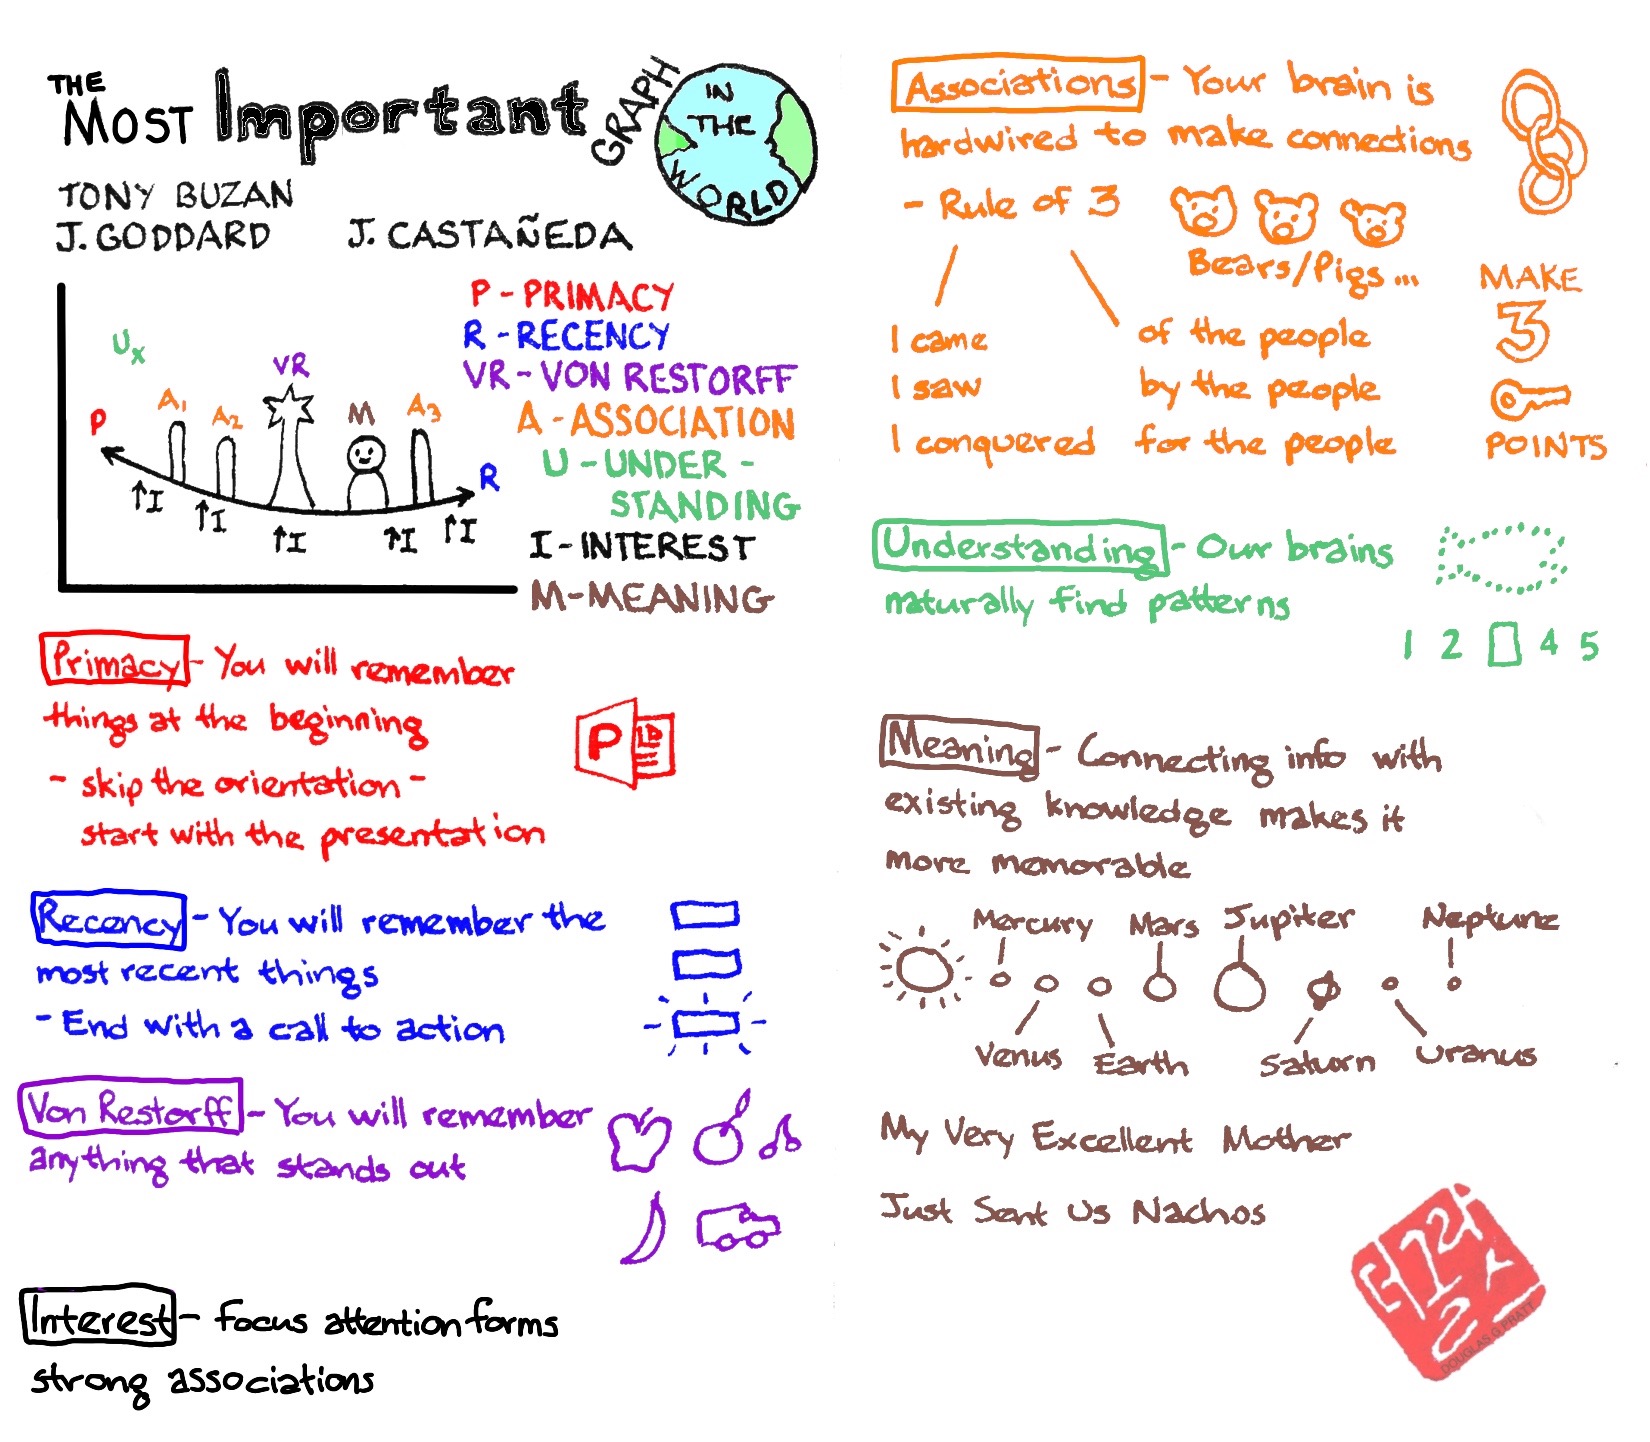 THE
MOST Important GRAPH IN THE WORLD
TONY BUZAN
J. GODDARD J. CASTAÑEDA
P - PRIMACY
R - RECENCY
VR - VON RESTORFF
A - ASSOCIATION
U - UNDER -
STANDING
I - INTEREST
M - MEANING
Ux
P
A1
A2
VR
M
A3
R
↑I
↑I
↑I
↑I
↑I
Primacy - You will remember
things at the beginning
- skip the orientation -
start with the presentation
P
Recency - You will remember the
most recent things
- End with a call to action
Von Restorff - You will remember
anything that stands out
Interest - Focus attention forms
strong associations
Associations - Your brain is
hardwired to make connections
- Rule of 3
Bears/Pigs...
I came
I saw
I conquered
of the people
by the people
for the people
MAKE
3
POINTS
Understanding - Our brains
naturally find patterns
1 2 4 5
Meaning - Connecting info with
existing knowledge makes it
more memorable
Mercury Mars Jupiter Neptune
Venus Earth Saturn Uranus
My Very Excellent Mother
Just Sent Us Nachos
DOUGLAS G. PRATT